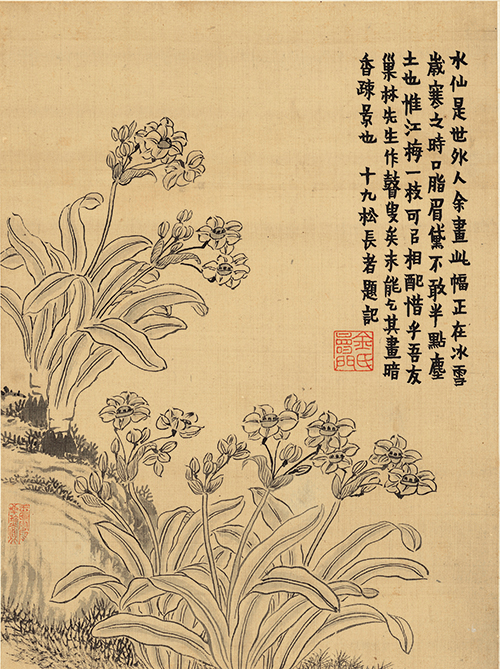 水仙是世外人余畫此幅正在冰雪
歲寒之時口脂眉黛不敢半點塵
土也惟江梅一枝可以相配惜乎吾友
巢林先生作瞽叟矣未能乞其畫暗
香疎景也 十九松長者題記
金氏壽門